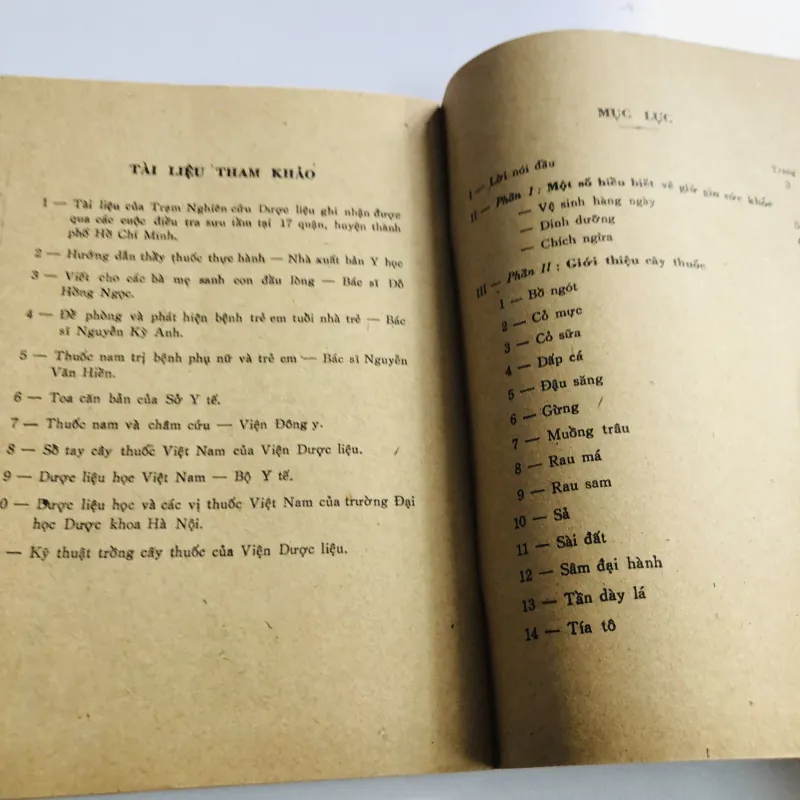 TÀI LIỆU THAM KHẢO
1 — Tài liệu của Trạm Nghiên cứu Dược liệu ghi nhận được
qua các cuộc điều tra sưu tầm tại 17 quận, huyện thành
phố Hồ Chí Minh.
2 — Hướng dẫn thầy thuốc thực hành — Nhà xuất bản Y học
3 — Viết cho các bà mẹ sanh con đầu lòng — Bác sĩ Đỗ
Hồng Ngọc.
4 — Đề phòng và phát hiện bệnh trẻ em tuổi nhà trẻ — Bác
sĩ Nguyễn Kỳ Anh.
5 — Thuốc nam trị bệnh phụ nữ và trẻ em — Bác sĩ Nguyễn
Văn Hiền.
6 — Toa căn bản của Sở Y tế.
7 — Thuốc nam và châm cứu — Viện Đông y.
8 — Sổ tay cây thuốc Việt Nam của Viện Dược liệu.
9 — Dược liệu học Việt Nam — Bộ Y tế.
0 — Dược liệu học và các vị thuốc Việt Nam của trường Đại
học Dược khoa Hà Nội.
— Kỹ thuật trồng cây thuốc của Viện Dược liệu.
MỤC LỤC
Trang
I — Lời nói đầu 3
II — Phần I : Một số hiểu biết về giữ gìn sức khỏe
— Vệ sinh hàng ngày 5
— Dinh dưỡng
— Chích ngừa
III — Phần II : Giới thiệu cây thuốc
1 — Bồ ngót
2 — Cỏ mực
3 — Cỏ sữa
4 — Dấp cá
5 — Đậu săng
6 — Gừng
7 — Muồng trâu
8 — Rau má
9 — Rau sam
10 — Sả
11 — Sài đất
12 — Sâm đại hành
13 — Tần dày lá
14 — Tía tô